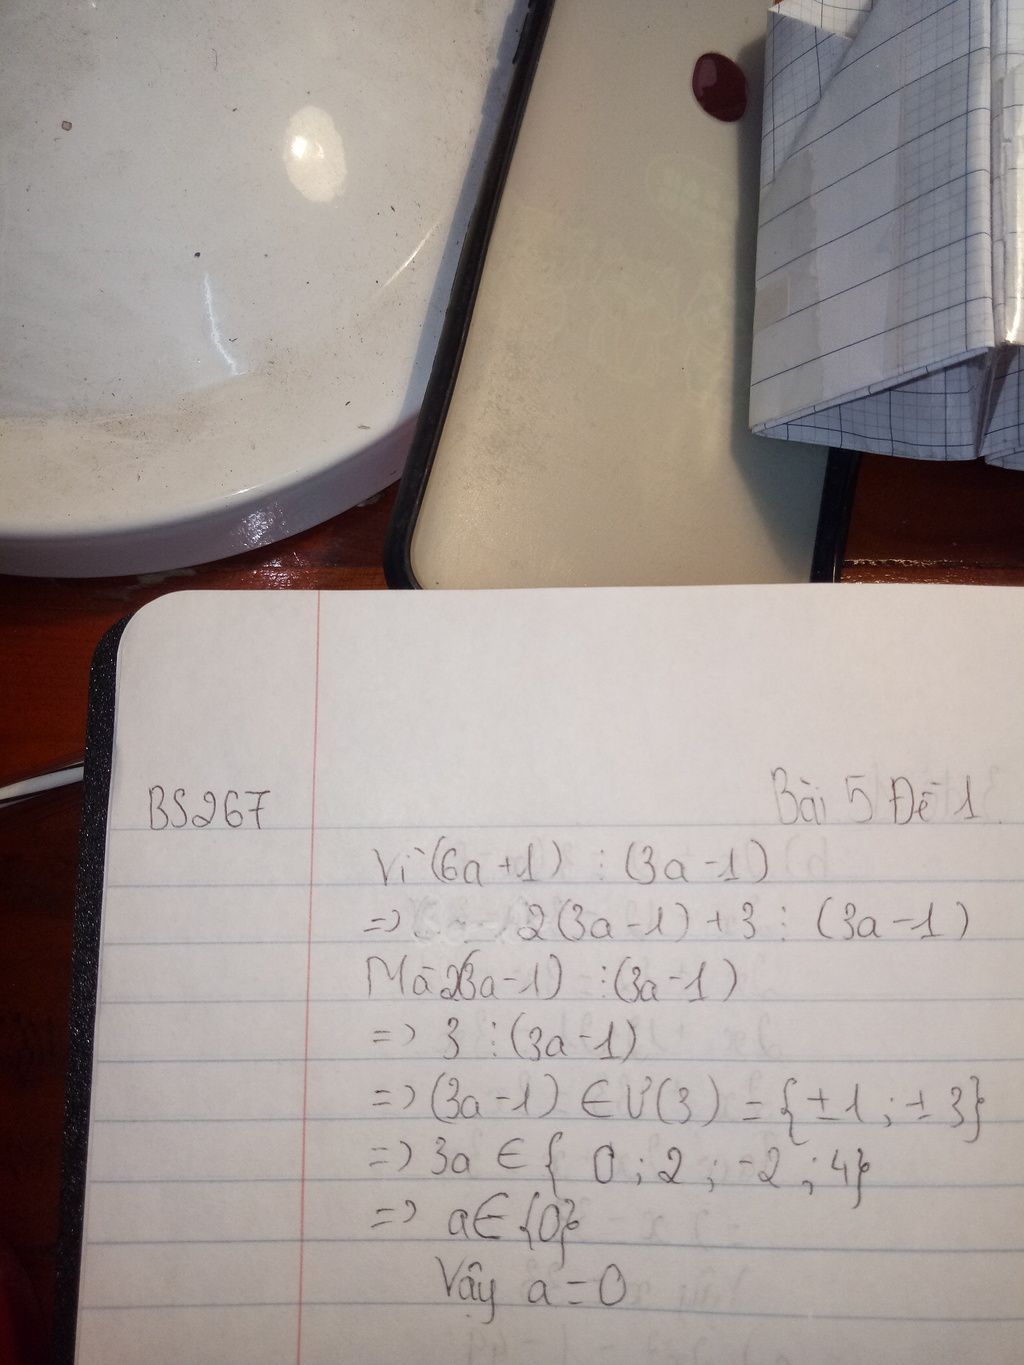 BS267
Bài 5 Đề 1
Vì (6a+1) ⋮ (3a-1)
=> 2(3a-1)+3 ⋮ (3a-1)
Mà 2(3a-1) ⋮ (3a-1)
=> 3 ⋮ (3a-1)
=> (3a-1) ∈ Ư(3) = {±1 ; ±3}
=> 3a ∈ { 0 ; 2 ; -2 ; 4}
=> a ∈ {0}
Vậy a = 0